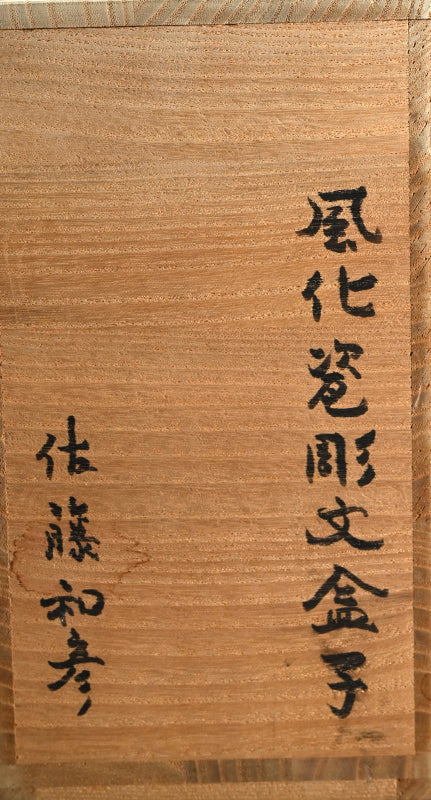 風化瓷彫文盒子
佐藤和彦